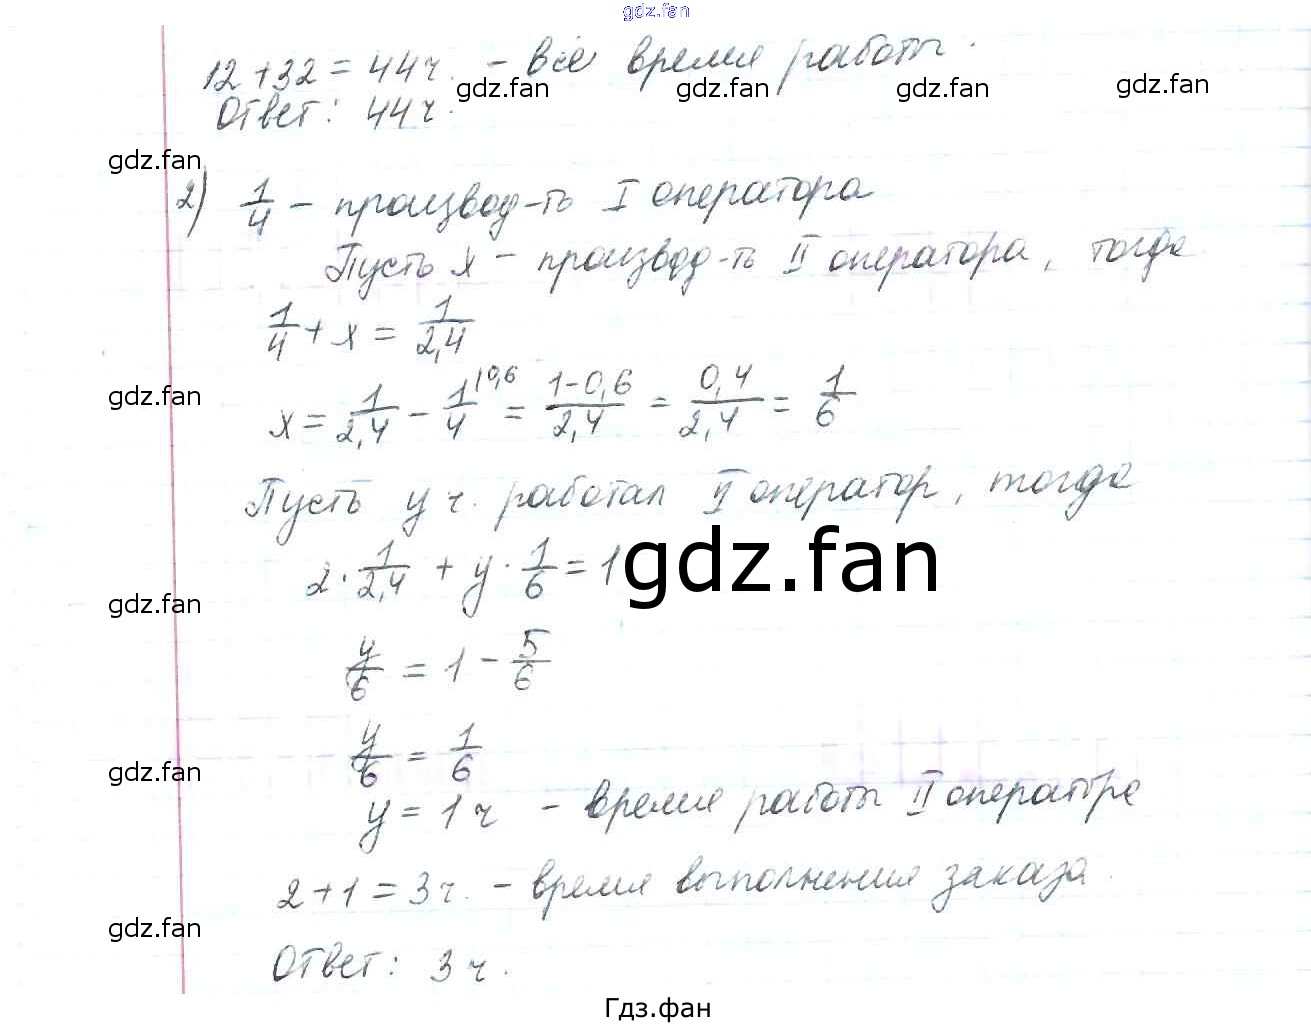 gdz.fan
12+32=44ч. - всё время работы.
gdz.fan gdz.fan gdz.fan gdz.fan
Ответ: 44ч.
gdz.fan
2) 1/4 - производ-ть I оператора
Пусть x - производ-ть II оператора, тогда
1/4 + x = 1/2,4
gdz.fan
x = 1/2,4 - 1/4 |0,6 = 1-0,6/2,4 = 0,4/2,4 = 1/6
Пусть y ч. работал II оператор, тогда
2 · 1/2,4 + y · 1/6 = 1
gdz.fan
gdz.fan
y/6 = 1 - 5/6
y/6 = 1/6
gdz.fan
y = 1ч - время работы II оператора
2+1=3ч. - время выполнения заказа.
gdz.fan
Ответ: 3ч.
Гдз.фан